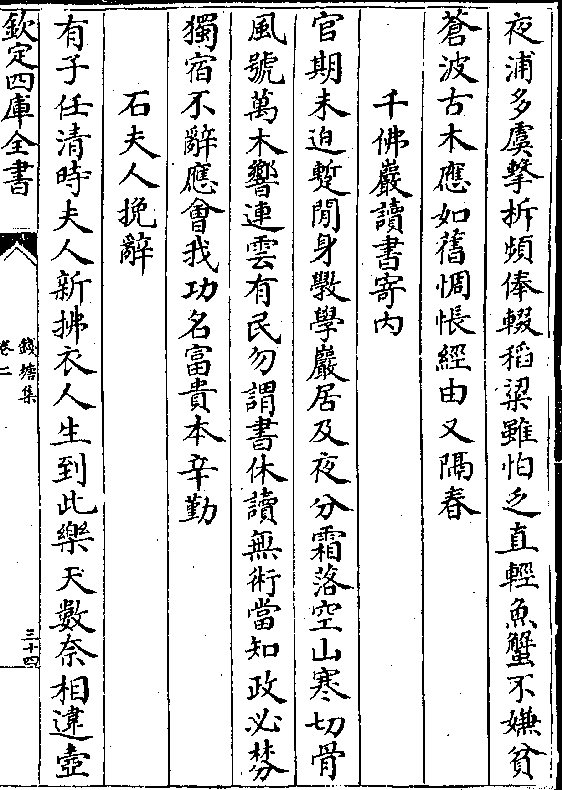 夜浦多虞擊柝頻俸輟稻粱雖怕乏直輕魚蟹不嫌貧
蒼波古木應如舊惆悵經由又隔春
千佛巖讀書寄内
官期未迫暫閒身斆學巖居及夜分霜落空山寒切骨
風號萬木響連雲有民勿謂書休讀無術當知政必棼
獨宿不辭應會我功名富貴本辛勤
石夫人挽辭
有子任清時夫人新拂衣人生到此樂天數奈相違壺
欽定四庫全書
錢塘集
卷二
三十四